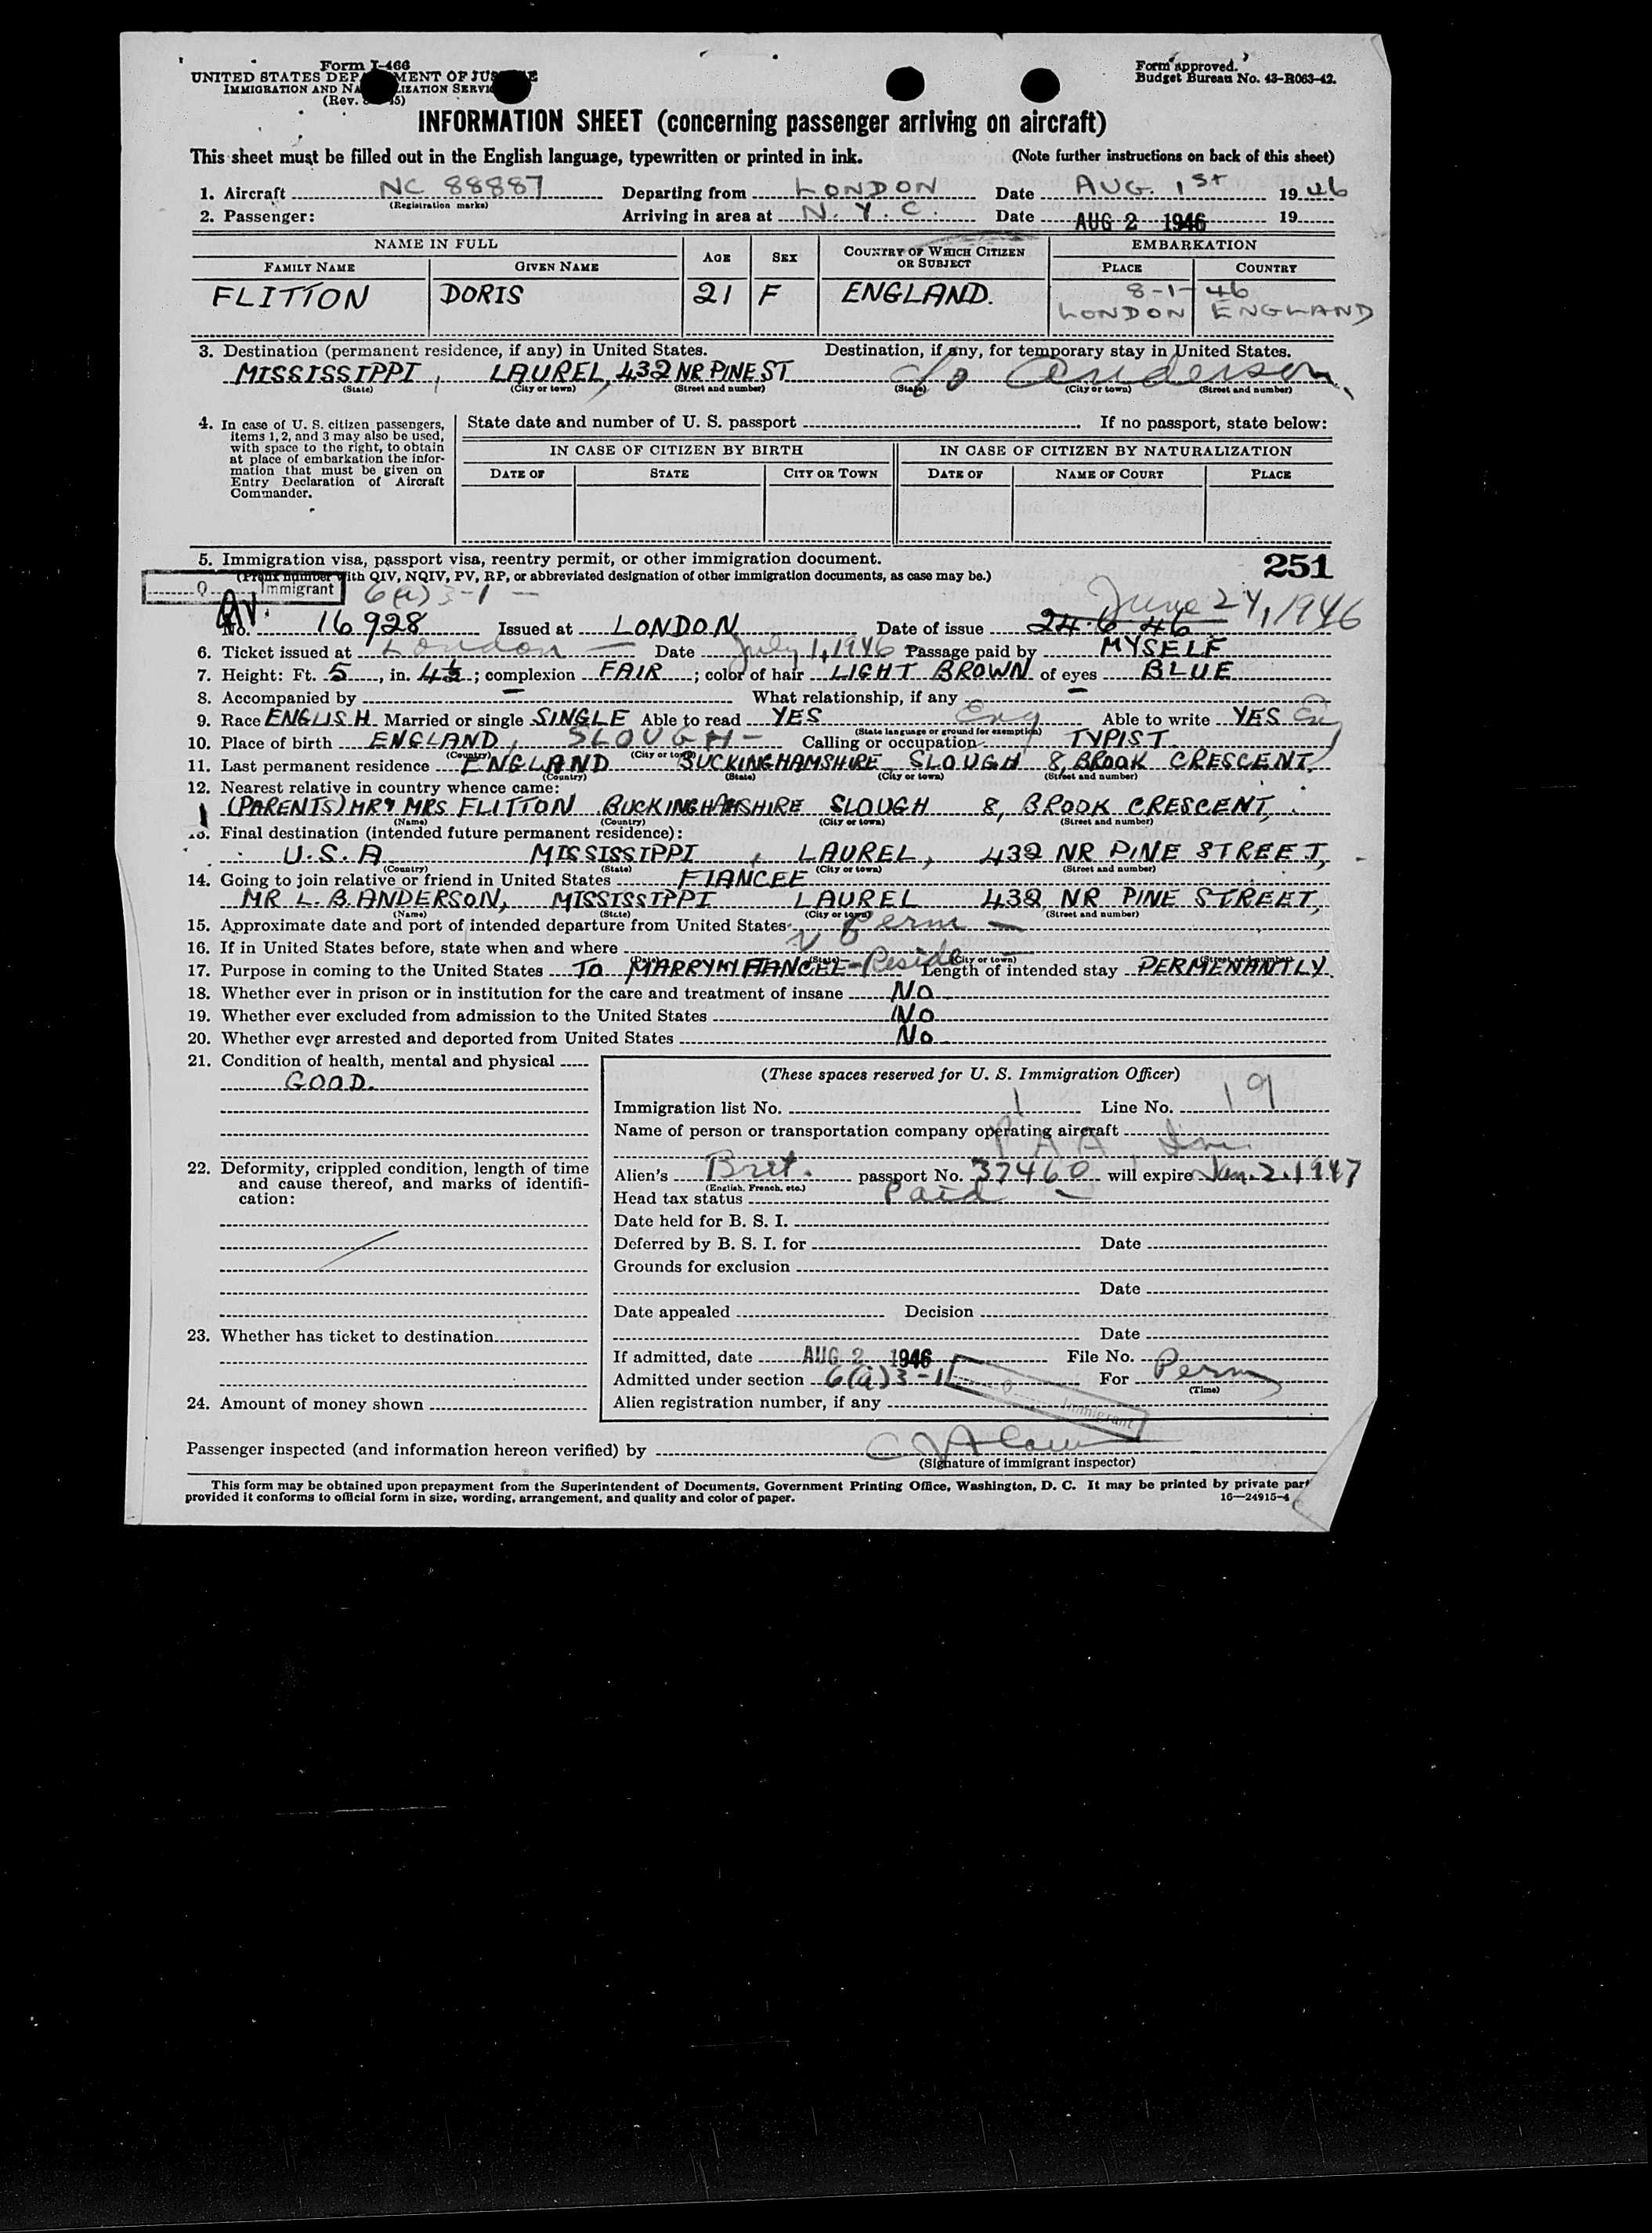 Form I-466
UNITED STATES DEP MENT OF JUS E
IMMIGRATION AND NA LIZATION SERVI
(Rev. 45)
Form approved.
Budget Bureau No. 43-R063-42.
INFORMATION SHEET (concerning passenger arriving on aircraft)
This sheet must be filled out in the English language, typewritten or printed in ink. (Note further instructions on back of this sheet)
1. Aircraft NC 88887 Departing from LONDON Date AUG. 1st 1946
(Registration marks)
2. Passenger: Arriving in area at N.Y.C. Date AUG 2 1946 19
NAME IN FULL AGE SEX COUNTRY OF WHICH CITIZEN OR SUBJECT EMBARKATION
FAMILY NAME GIVEN NAME PLACE COUNTRY
8-1-46
FLITTON DORIS 21 F ENGLAND. LONDON ENGLAND
3. Destination (permanent residence, if any) in United States. Destination, if any, for temporary stay in United States.
MISSISSIPPI, LAUREL, 432 NR PINE ST c/o Anderson
(State) (City or town) (Street and number) (State) (City or town) (Street and number)
4. In case of U. S. citizen passengers, items 1, 2, and 3 may also be used, with space to the right, to obtain at place of embarkation the information that must be given on Entry Declaration of Aircraft Commander.
State date and number of U. S. passport If no passport, state below:
IN CASE OF CITIZEN BY BIRTH IN CASE OF CITIZEN BY NATURALIZATION
DATE OF STATE CITY OR TOWN DATE OF NAME OF COURT PLACE
5. Immigration visa, passport visa, reentry permit, or other immigration document. 251
(Prefix number with QIV, NQIV, PV, RP, or abbreviated designation of other immigration documents, as case may be.)
Q Immigrant 6(a)3-1 —
No. 16928 Issued at LONDON Date of issue 24.6.46 June 24, 1946
6. Ticket issued at London — Date July 1, 1946 Passage paid by MYSELF
7. Height: Ft. 5, in. 4½; complexion FAIR; color of hair LIGHT BROWN of eyes BLUE
8. Accompanied by — What relationship, if any —
9. Race ENGLISH Married or single SINGLE Able to read YES Eng Able to write YES Eng
(State language or ground for exemption)
10. Place of birth ENGLAND, SLOUGH - Calling or occupation TYPIST
(Country) (City or town)
11. Last permanent residence ENGLAND BUCKINGHAMSHIRE SLOUGH 8, BROOK CRESCENT
(Country) (State) (City or town) (Street and number)
12. Nearest relative in country whence came:
(PARENTS) MR & MRS FLITTON BUCKINGHAMSHIRE SLOUGH 8, BROOK CRESCENT,
(Name) (Country) (City or town) (Street and number)
13. Final destination (intended future permanent residence):
U.S.A MISSISSIPPI, LAUREL, 432 NR PINE STREET,
(Country) (State) (City or town) (Street and number)
14. Going to join relative or friend in United States FIANCEE
MR L. B. ANDERSON, MISSISSIPPI LAUREL 432 NR PINE STREET,
(Name) (State) (City or town) (Street and number)
15. Approximate date and port of intended departure from United States Perm —
16. If in United States before, state when and where
(Date) (State) (City or town) (Street and number)
17. Purpose in coming to the United States TO MARRY MY FIANCEE - Reside Length of intended stay PERMENANTLY.
18. Whether ever in prison or in institution for the care and treatment of insane NO
19. Whether ever excluded from admission to the United States NO
20. Whether ever arrested and deported from United States NO
21. Condition of health, mental and physical
GOOD.
22. Deformity, crippled condition, length of time and cause thereof, and marks of identification:
23. Whether has ticket to destination
24. Amount of money shown
(These spaces reserved for U. S. Immigration Officer)
Immigration list No. 1 Line No. 19
Name of person or transportation company operating aircraft
PAA, Inc.
Alien's Brit. passport No. 37460 will expire Jan. 2. 1947
(English, French, etc.)
Head tax status Paid —
Date held for B. S. I.
Deferred by B. S. I. for Date
Grounds for exclusion
Date
Date appealed Decision
Date
If admitted, date AUG 2 1946 File No.
Admitted under section 6(a)3-1 For Perm
(Time)
Q Immigrant
Alien registration number, if any
Passenger inspected (and information hereon verified) by
(Signature of immigrant inspector)
This form may be obtained upon prepayment from the Superintendent of Documents, Government Printing Office, Washington, D. C. It may be printed by private part
provided it conforms to official form in size, wording, arrangement, and quality and color of paper. 16—24915-4